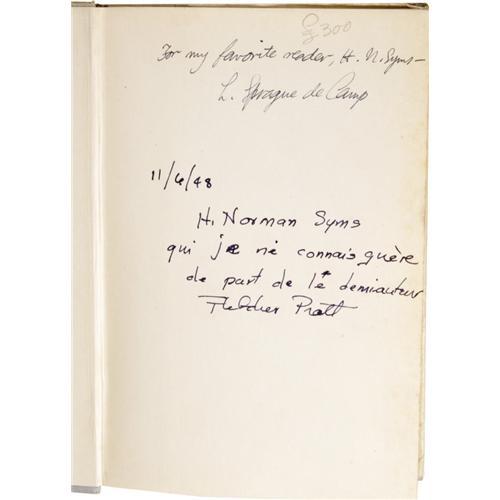 £300
For my favorite reader, H. N. Syms—
L. Sprague de Camp
11/6/48
H. Norman Syms
qui je ne connais guère
de part de le demiauteur
Fletcher Pratt